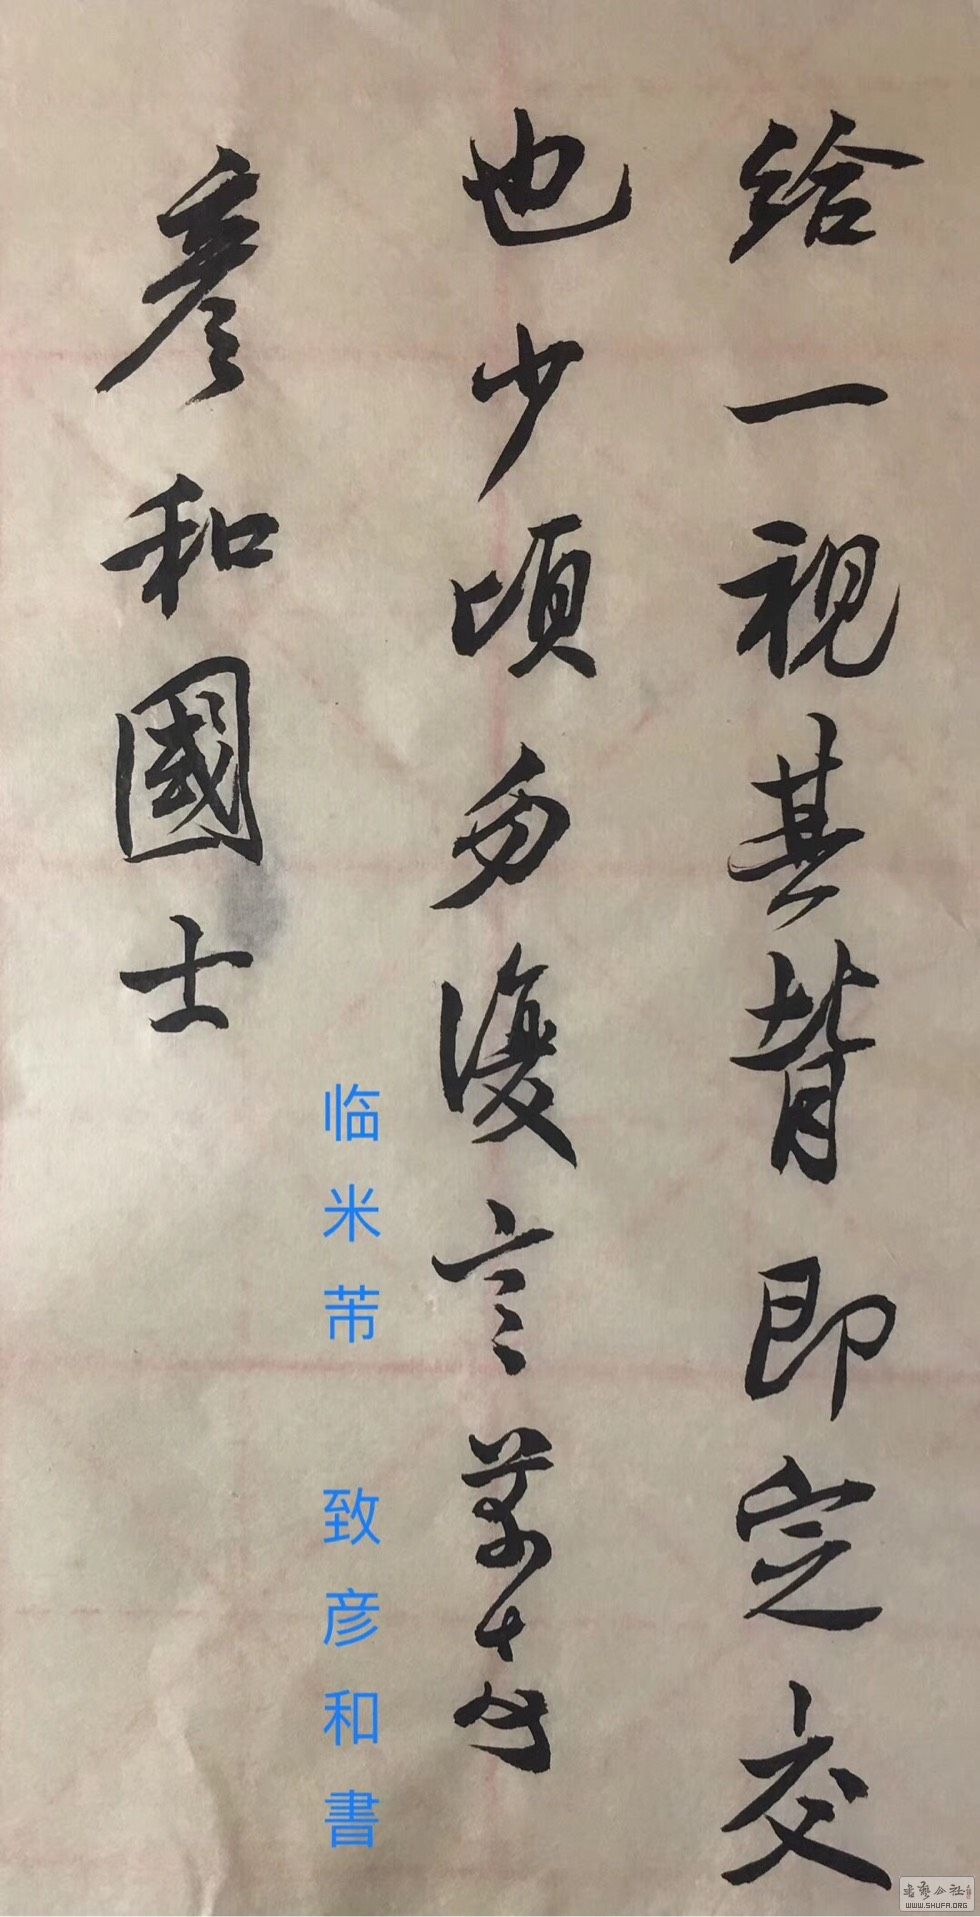 给一視其背即定交
也少頃勿復言芾頓首
彦和國士
临米芾 致彦和書
書藝公社
WWW.SHUFA.ORG